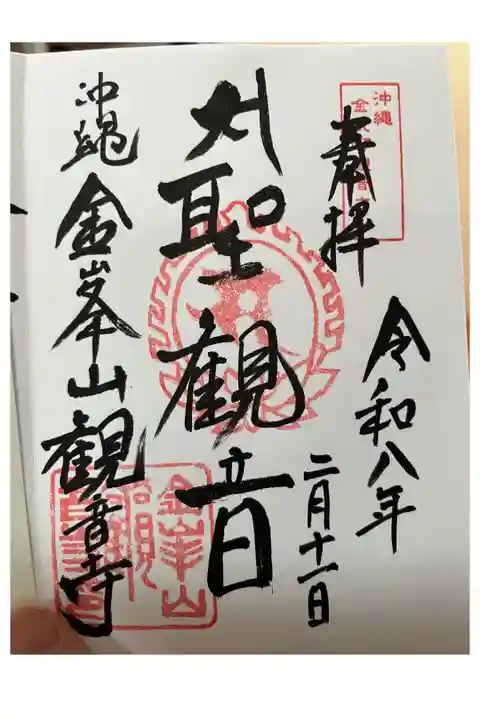 沖縄
奉拝
令和八年
二月十一日
聖観音
沖縄 金峯山観音寺
金峯山